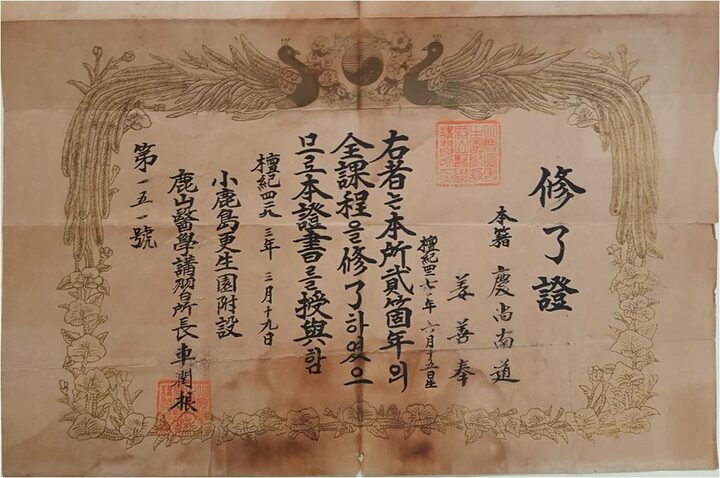 修了證
本籍 慶尙南道
姜善奉
檀紀四二七 年 六月十五日生
右者는本所貳箇年의
全課程을修了하였으
므로本證書를授與함
檀紀四二九三年 三月十九日
小鹿島更生園附設
鹿山醫學講習所長 車潤根
第一五一號